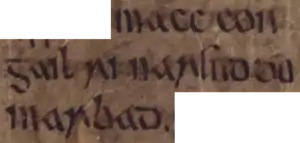 macc con
gail ri narsud do
marbad.